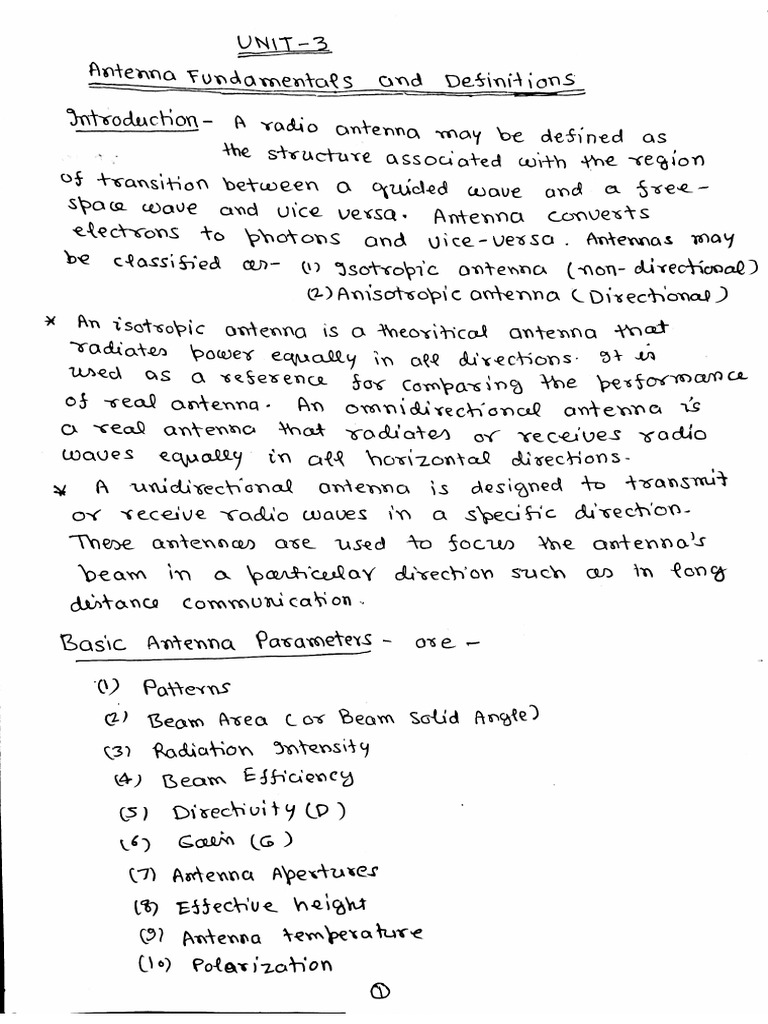 UNIT-3
Antenna Fundamentals and Definitions
Introduction - A radio antenna may be defined as
the structure associated with the region
of transition between a guided wave and a free-
space wave and vice versa. Antenna converts
electrons to photons and vice-versa. Antennas may
be classified as- (1) Isotropic antenna (non-directional)
(2) Anisotropic antenna (Directional)
* An isotropic antenna is a theoritical antenna that
radiates power equally in all directions. It is
used as a reference for comparing the performance
of real antenna. An omnidirectional antenna is
a real antenna that radiates or receives radio
waves equally in all horizontal directions.
* A unidirectional antenna is designed to transmit
or receive radio waves in a specific direction.
These antennas are used to focus the antenna's
beam in a particular direction such as in long
distance communication.
Basic Antenna Parameters - are -
(1) Patterns
(2) Beam Area (or Beam Solid Angle)
(3) Radiation Intensity
(4) Beam Efficiency
(5) Directivity (D)
(6) Gain (G)
(7) Antenna Apertures
(8) Effective height
(9) Antenna temperature
(10) Polarization
1